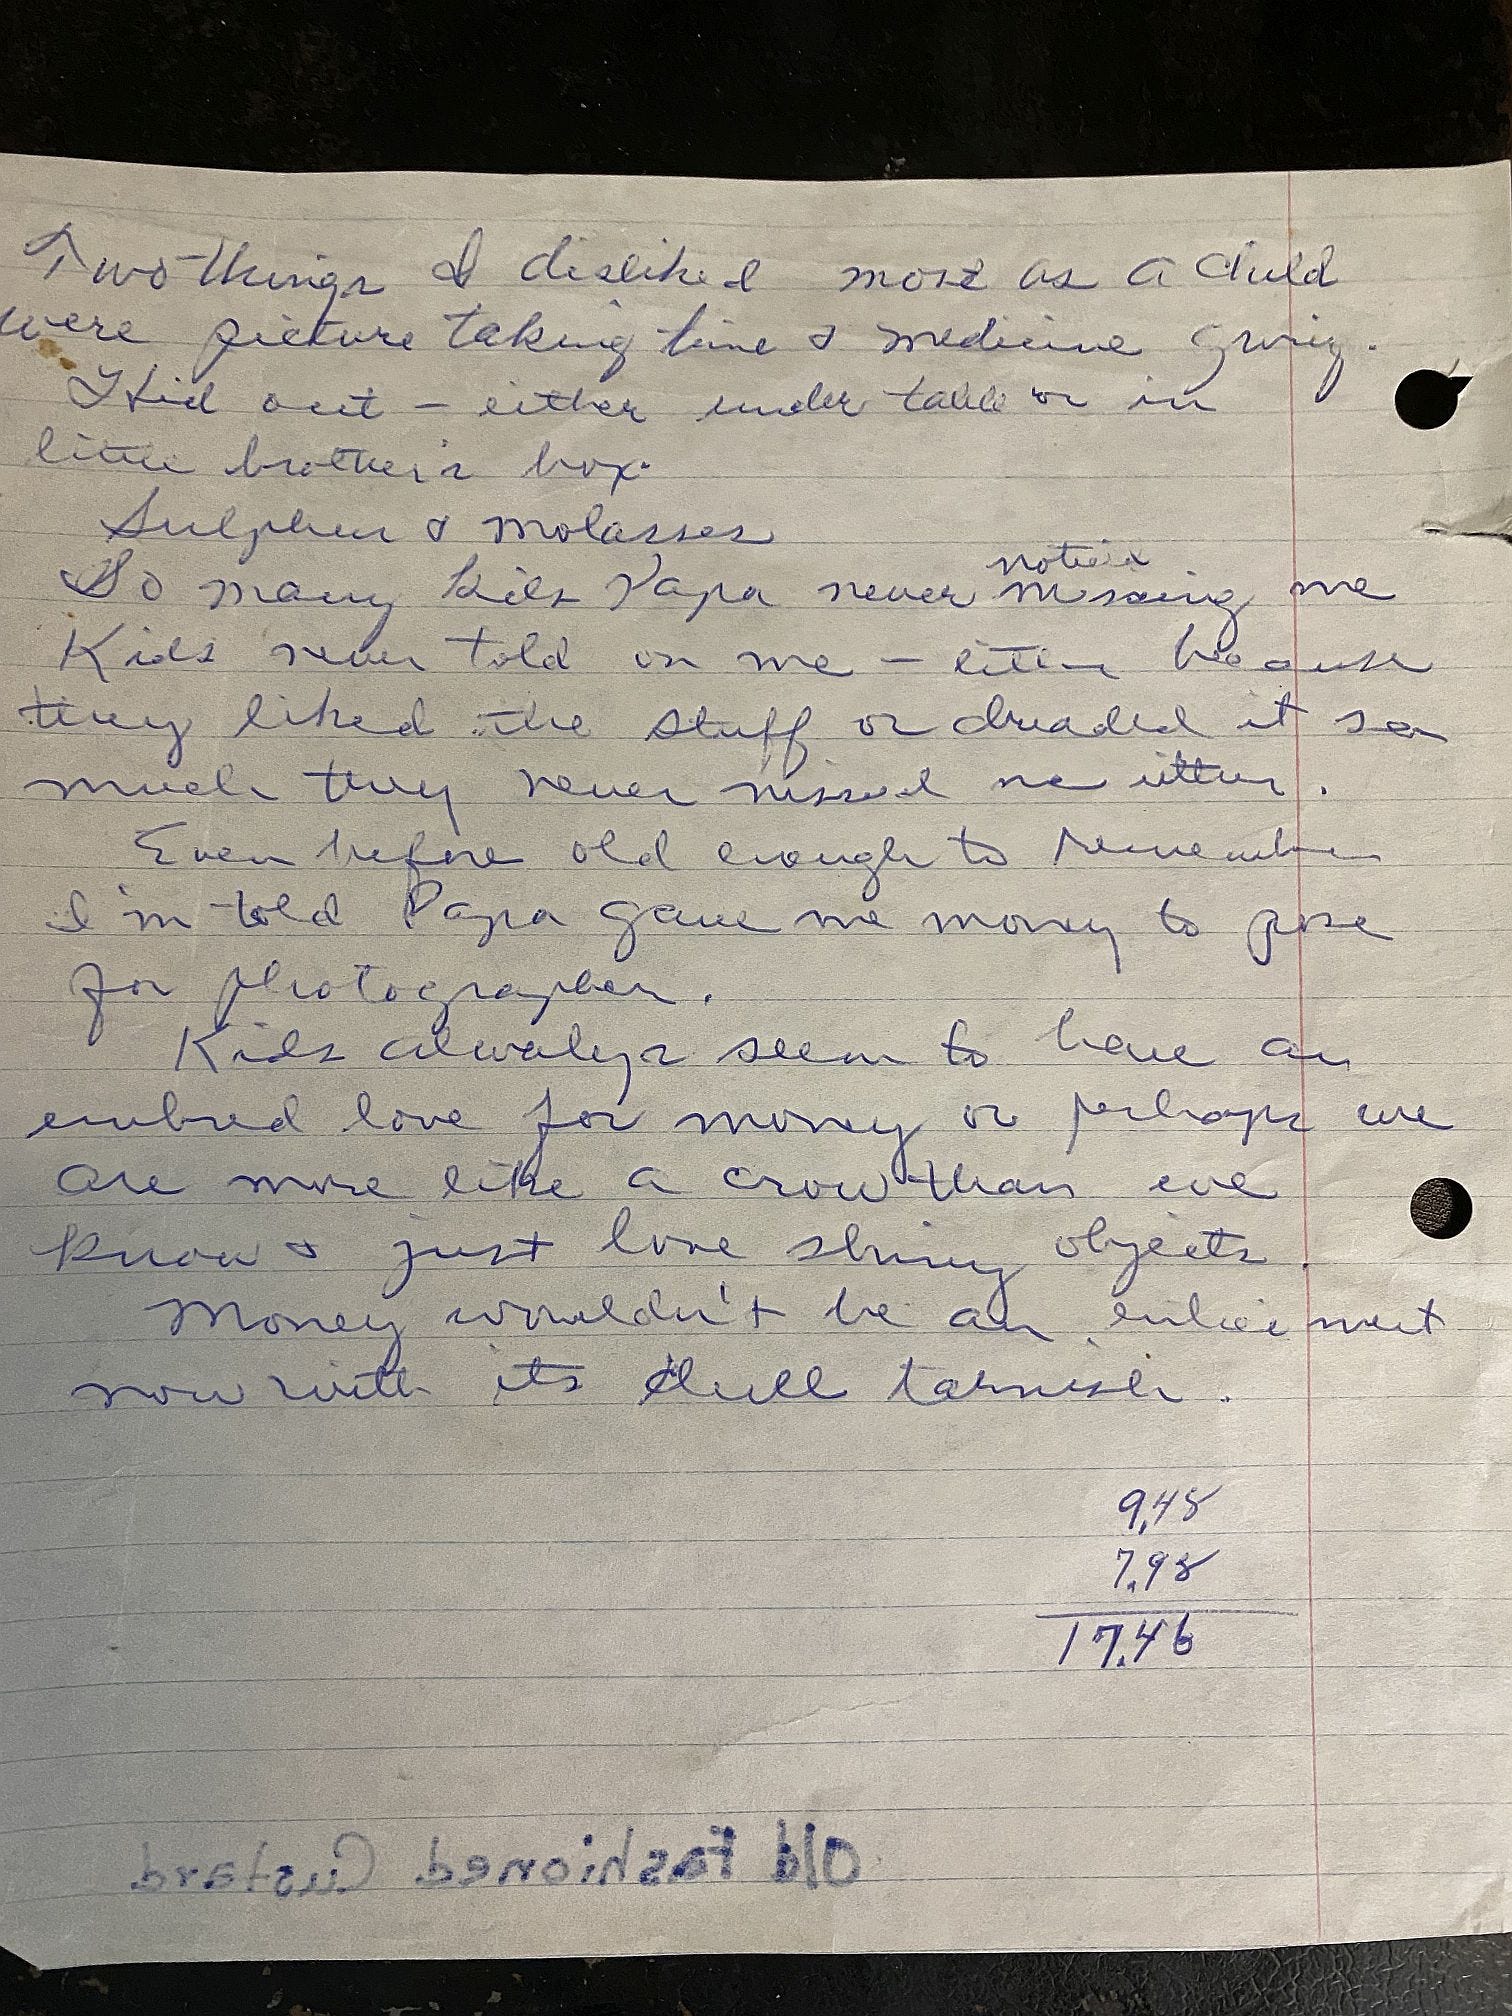 Two things I disliked most as a child
were picture taking time & medicine giving.
I hid out – either under table or in
little brother's box.
Sulpher & molasses
noticed
So many kids Papa never missing me
Kids never told on me – either because
they liked the stuff or dreaded it so
much they never missed me either.
Even before old enough to remember
I'm told Papa gave me money to pose
for photographer.
Kids always seem to have an
enbred love for money or perhaps we
are more like a crow than we
know & just love shiny objects.
Money wouldn't be an enticement
now with its dull tarnish.
9.48
7.98
17.46
Old Fashioned Custard